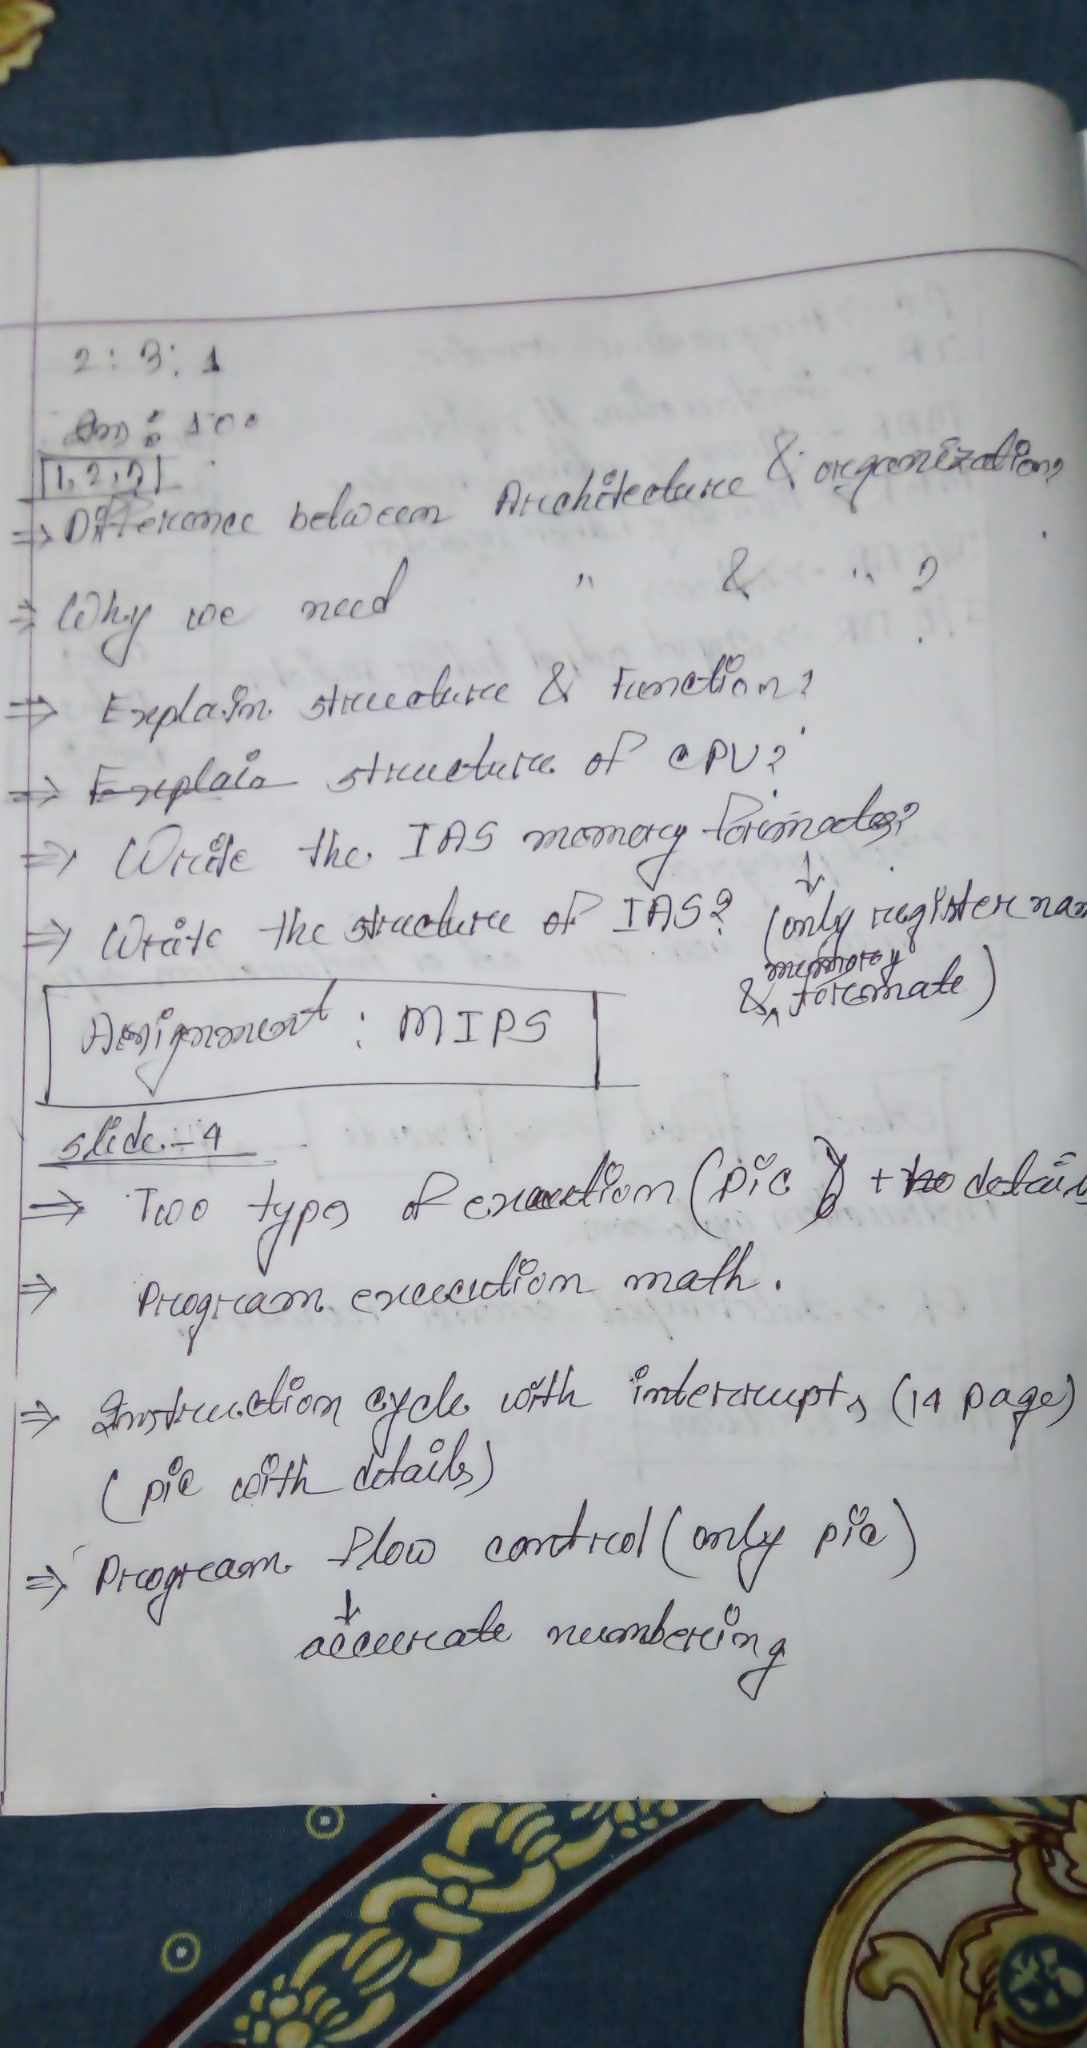 2 : 3 : 1
Ans : 100
1, 2, 2
⇒ Difference between Architecture & organization?
⇒ Why we need " & " ?
⇒ Explain structure & Function?
⇒ Explain structure of CPU?
⇒ Write the IAS memory formates?
↓
⇒ Write the structure of IAS? (only register nam
memory
& ^ formate)
Assignment : MIPS
slide - 4
⇒ Two types of execution (pic) + details
⇒ Program execution math.
⇒ Instruction cycle with interrupts (14 page)
(pic with details)
⇒ Program flow control (only pic)
↓
accurate numbering